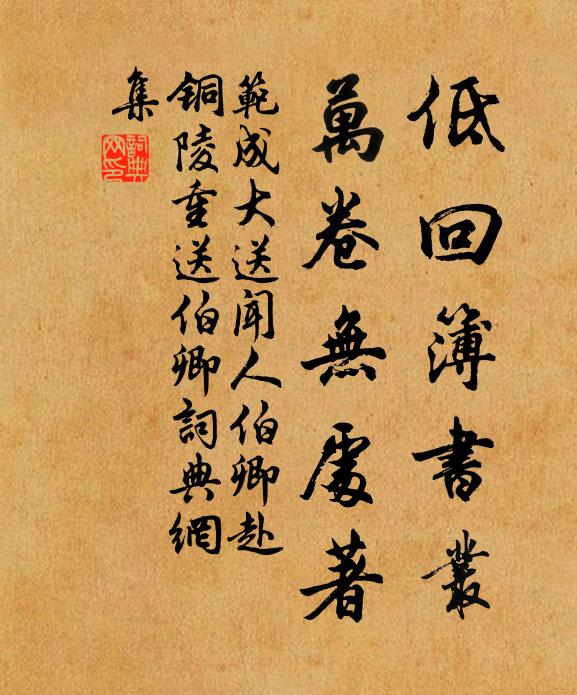 低回簿書叢
萬卷無處著
範成大送聞人伯卿赴
铜陵重送伯卿詞典網
集
詞典網印